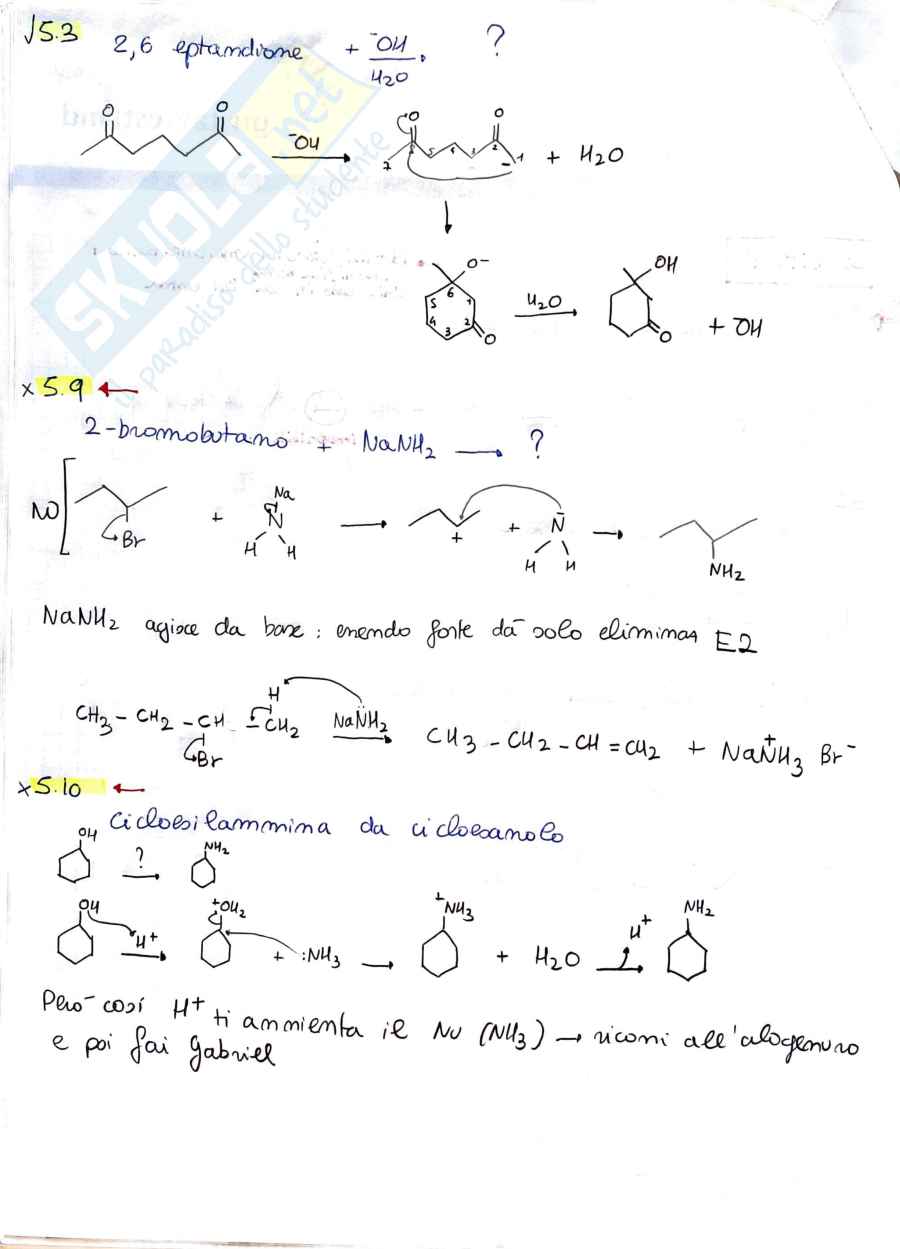 √5.3 2,6 eptandione + ⁻OH/H2O. ?
O O ⁻OH O O 7 6 5 4 3 2 - 1 + H2O
O⁻ 6 5 1 4 2 3 O H2O OH O + ⁻OH
x 5.9 ←
2-bromobutano + NaNH2 → ?
NO [ Br + Na N H H → + + N̄ H H → NH2
NaNH2 agisce da base : essendo forte dà solo eliminaz E2
CH3 - CH2 - CH - CH2 H Br NaNH2 → CH3 - CH2 - CH = CH2 + NaN⁺H3 Br⁻
x 5.10 ←
Cicloesilammina da cicloesanolo
OH ? → NH2
OH H⁺ → ⁺OH2 + :NH3 → ⁺NH3 + H2O → H⁺ NH2
Però così H⁺ ti ammienta il Nu (NH3) → ricorri all'alogenuro
e poi fai Gabriel
SKUOLA.net
il paradiso dello studente